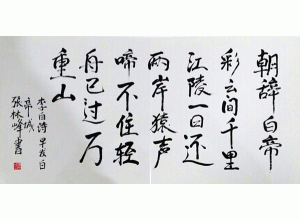 朝辞白帝
彩云间千里
江陵一日还
两岸猿声
啼不住轻
舟已过万
重山
李白诗早发白
帝城
张栋峰书